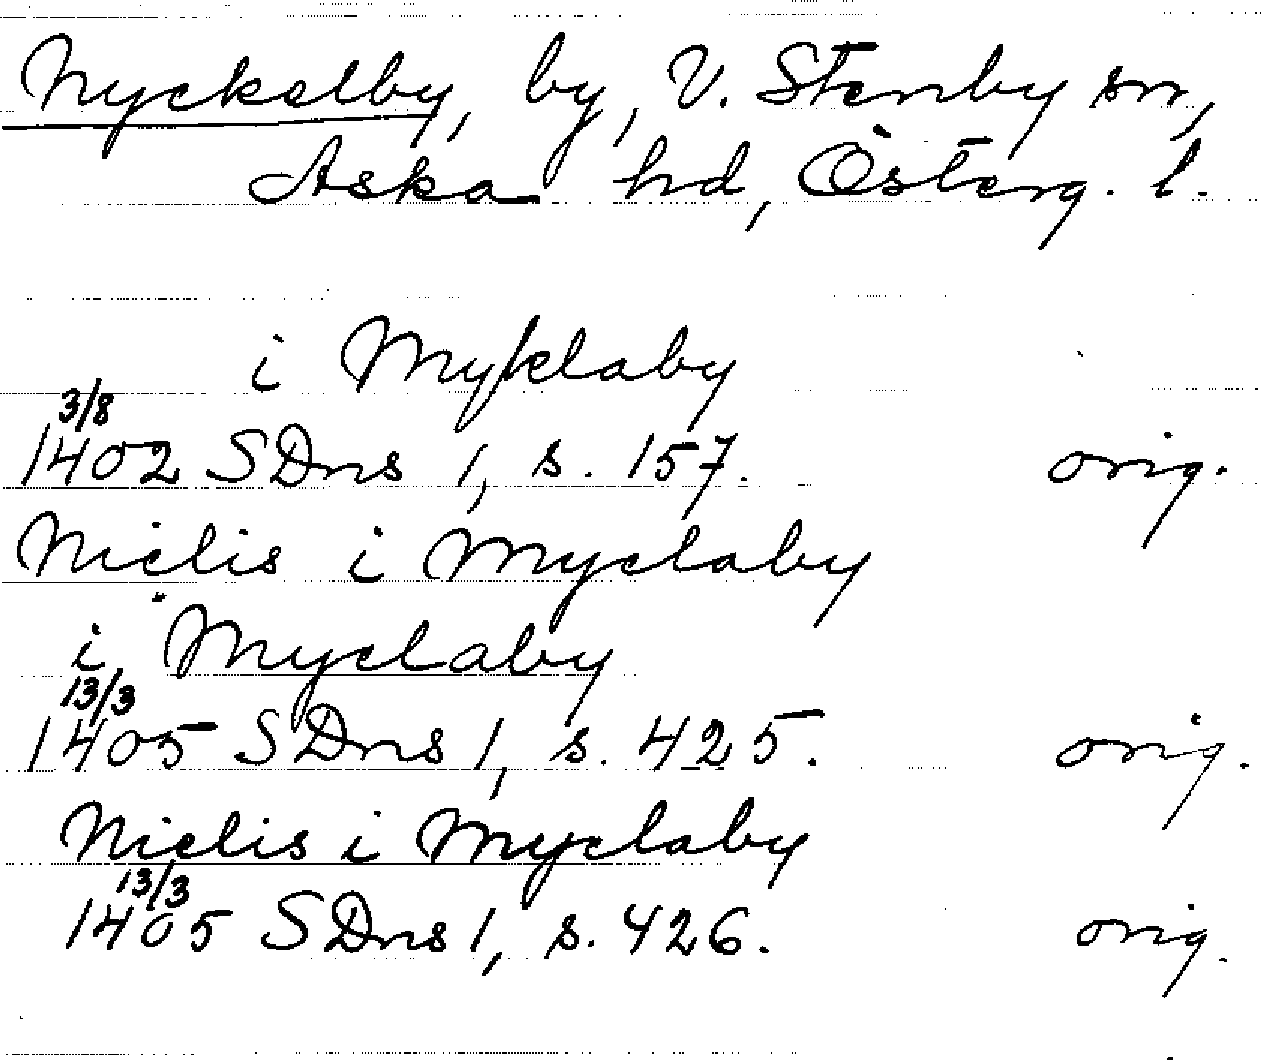 Nyckelby, by, V. Stenby sn,
Aska hd, Österg. l.
i Myklaby
3/8
1402 SDns 1, s. 157. orig.
Niclis i Myclaby
i Myclaby
13/3
1405 SDns 1, s. 425. orig.
Niclis i Myclaby
13/3
1405 SDns 1, s. 426. orig.